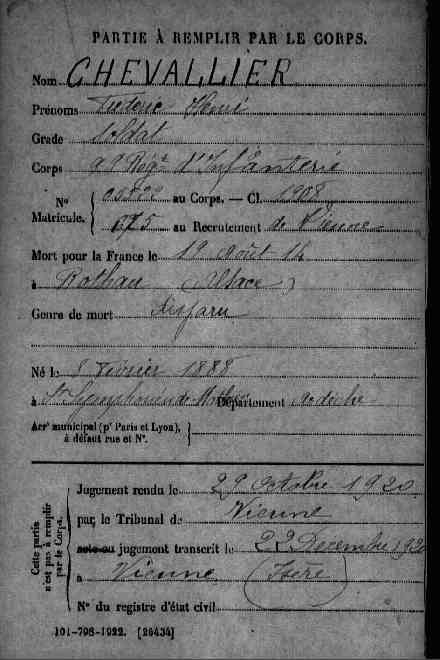 PARTIE À REMPLIR PAR LE CORPS.
Nom CHEVALLIER
Prénoms Henri
Grade Soldat
Corps 99 Régt d'Infanterie
N° Matricule. au Corps. — Cl. 1908
875 au Recrutement de Vienne
Mort pour la France le 19 Août 14
à Rothau (Alsace)
Genre de mort Disparu
Né le 8 Février 1888
à St Symphorien de Département Ardèche
Arrt municipal (pr Paris et Lyon), à défaut rue et N°.
Cette partie n'est pas à remplir par le Corps.
Jugement rendu le 29 Octobre 1920
par le Tribunal de Vienne
acte ou jugement transcrit le 22 Décembre 1920
à Vienne (Isère)
N° du registre d'état civil
101-708-1922. [26434]